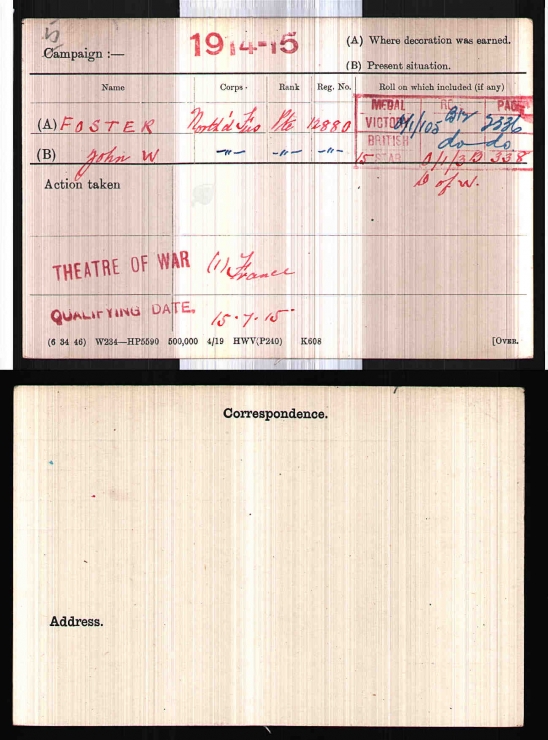 Campaign :—
1914-15
(A) Where decoration was earned.
(B) Present situation.
Name Corps. Rank Reg. No. Roll on which included (if any)
MEDAL PAGE
(A) FOSTER North'd Fus Pte 12880 VICTORY 2336
(B) John W -"- -"- -"- BRITISH do do
15 STAR 338
Action taken D of W.
THEATRE OF WAR (1) France
QUALIFYING DATE. 15.7.15
(6 34 46) W234—HP5590 500,000 4/19 HWV(P240) K608 [OVER.
Correspondence.
Address.